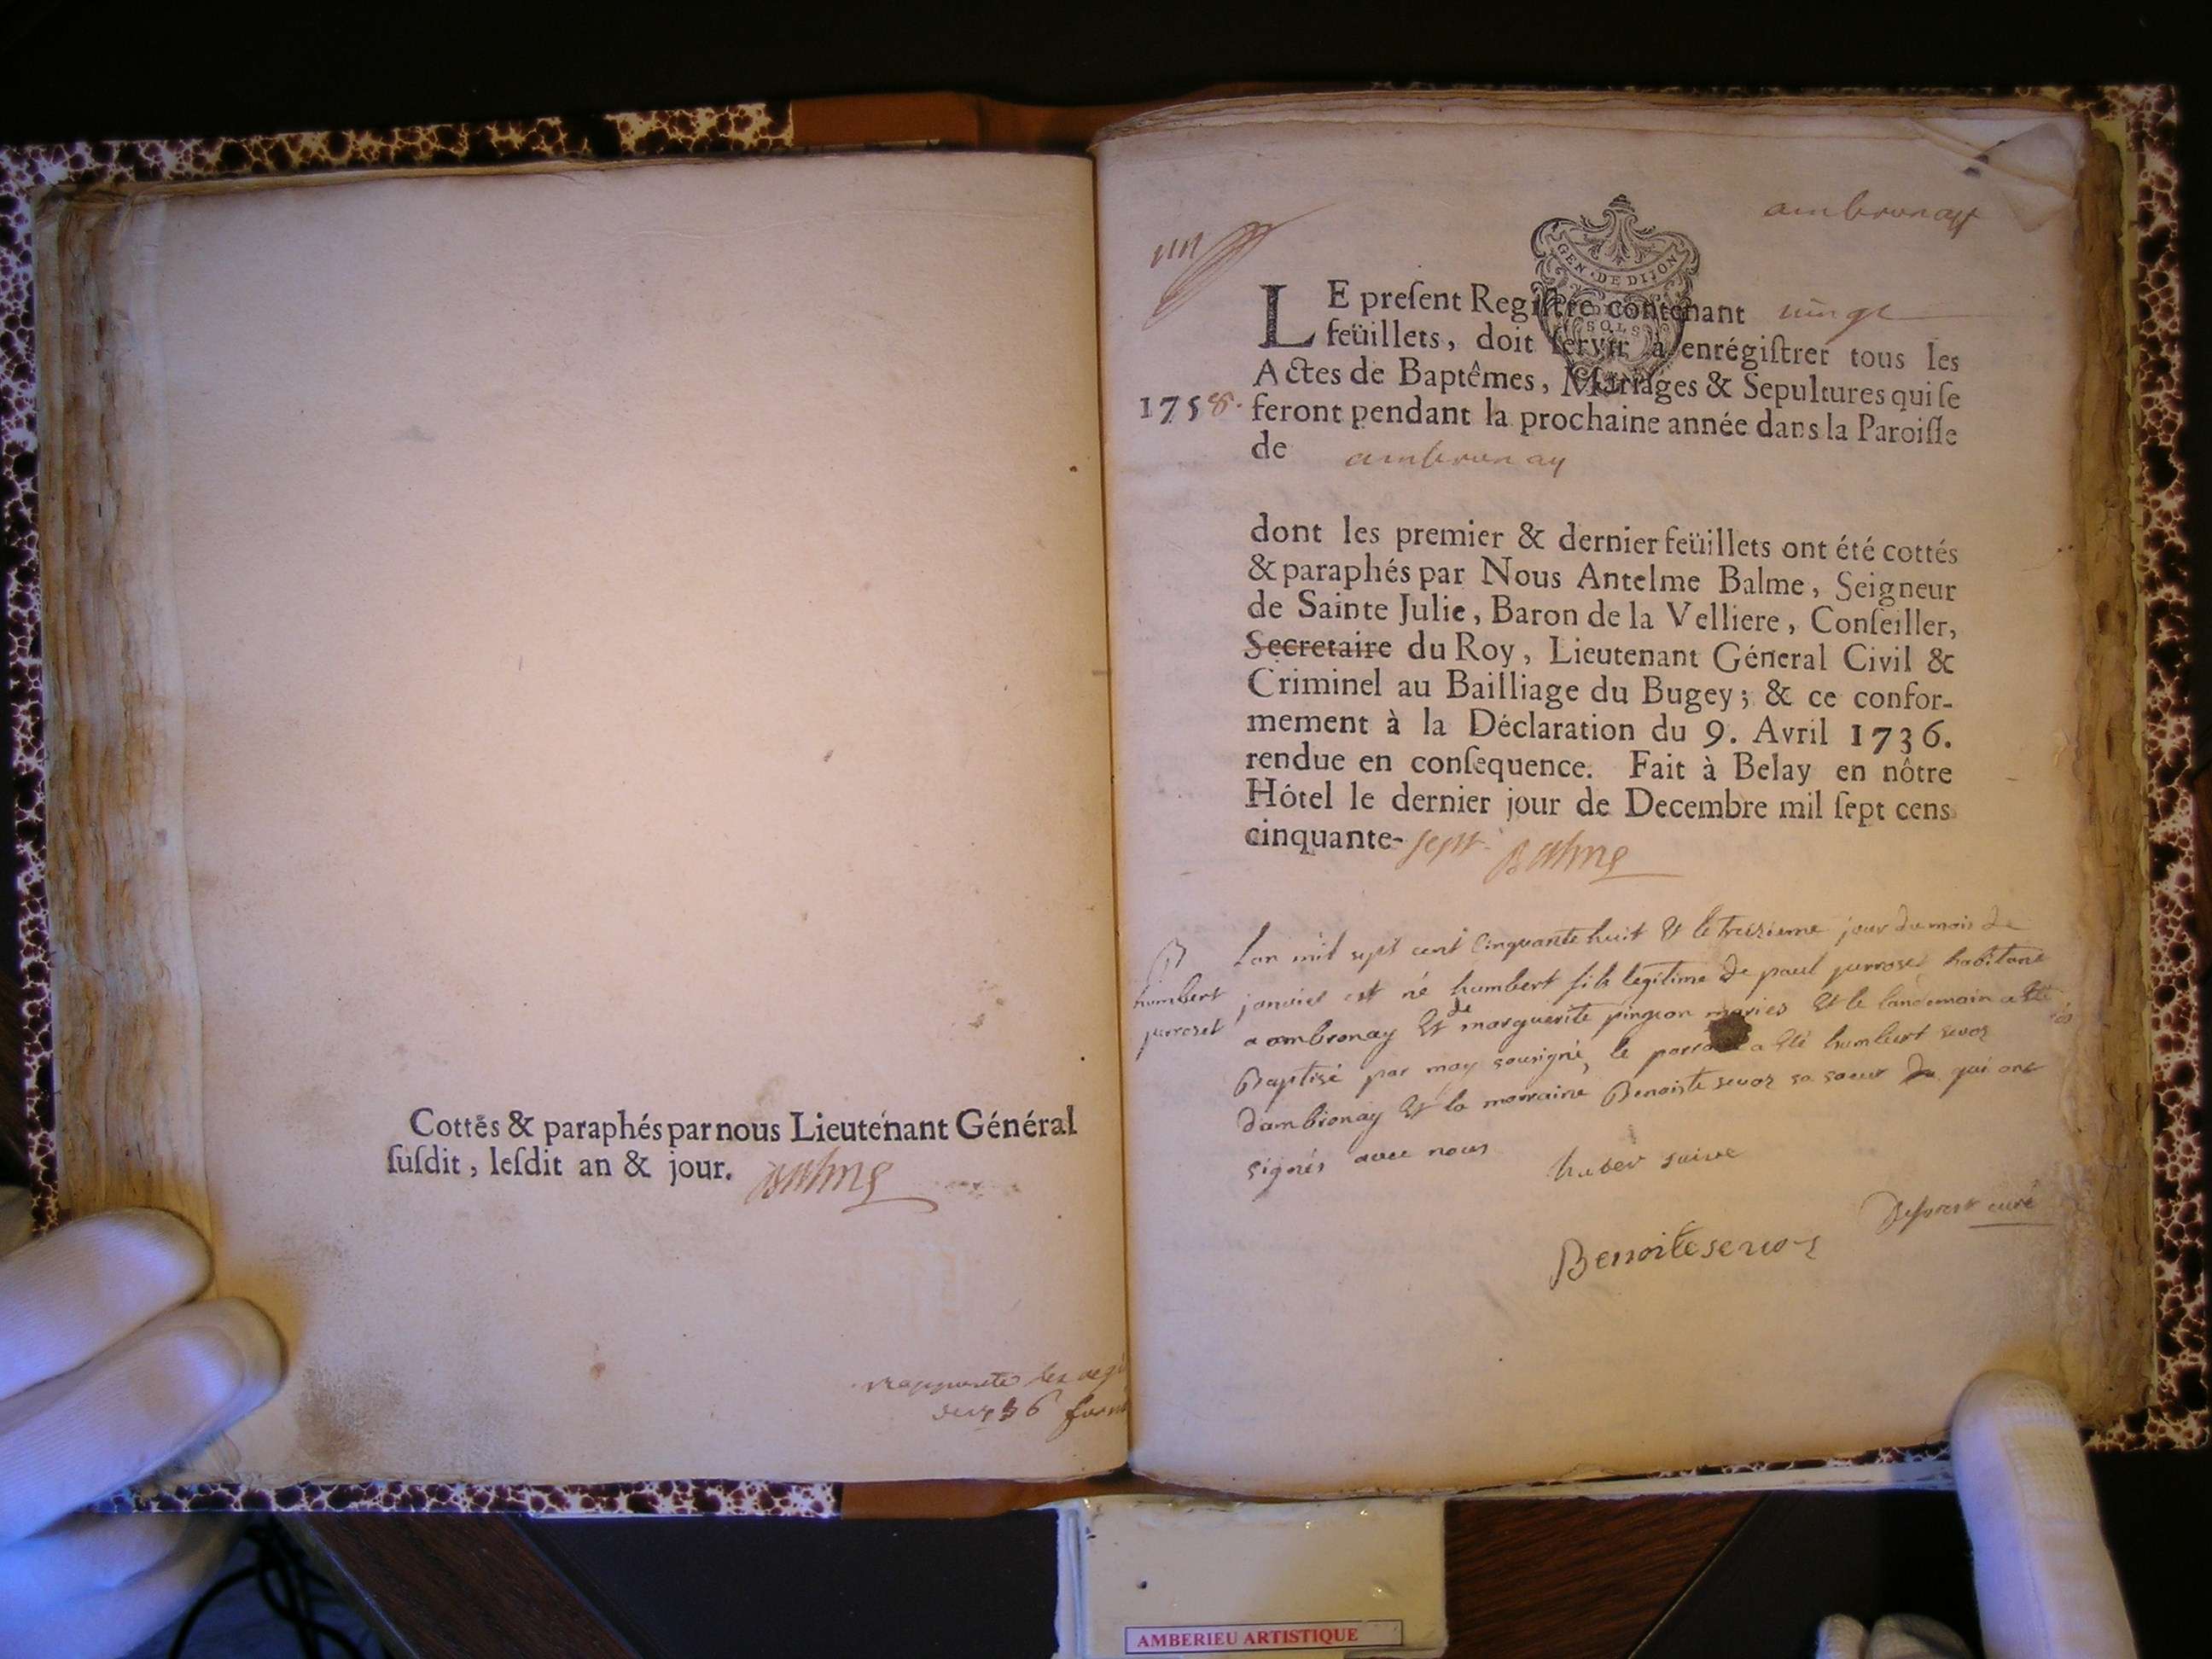 Cottés & paraphés par nous Lieutenant Général
ſuſdit, leſdit an & jour. Balme
ambronay
un
GEN·DE DIJON
SOLS
LE preſent Regiſtre contenant vingt
feüillets, doit ſervir à enrégiſtrer tous les
Actes de Baptêmes, Mariages & Sepultures qui ſe
1758. feront pendant la prochaine année dans la Paroiſſe
de ambronay
dont les premier & dernier feüillets ont été cottés
& paraphés par Nous Antelme Balme, Seigneur
de Sainte Julie, Baron de la Velliere, Conſeiller,
Secretaire du Roy, Lieutenant Géneral Civil &
Criminel au Bailliage du Bugey; & ce confor-
mement à la Déclaration du 9. Avril 1736.
rendue en conſequence. Fait à Belay en nôtre
Hôtel le dernier jour de Decembre mil ſept cens
cinquante-sept Balme
B
humbert
lan mil sept cent cinquante huit Et le treizieme jour du mois de
janvier est né humbert fils legitime de paul habitant
a ambronay Et de marguerite pingeon mariés Et le landemain a été
Baptisé par moy sousigné, le a été humbert
dambronay Et la marraine Benoiste sa soeur qui ont
signés avec nous
Benoite
curé
AMBERIEU ARTISTIQUE